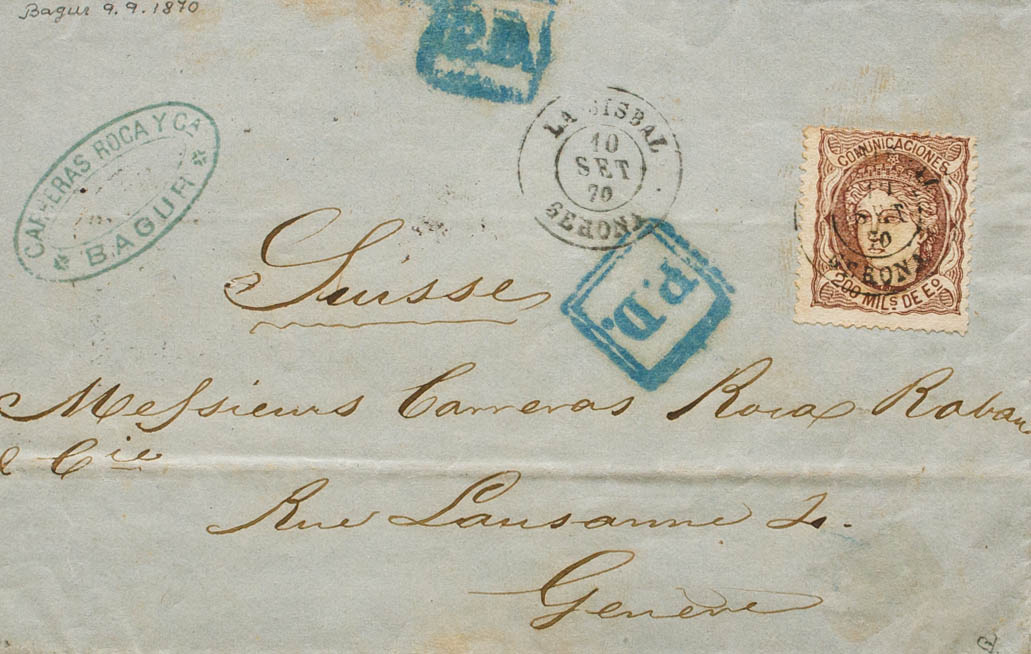 Bagur 9.9.1870
P.D.
CARRERAS ROCA Y Cª
BAGUR
LA BISBAL
10
SET
70
GERONA
COMUNICACIONES
70
GERONA
200 MILS. DE Eº
P.D.
Suisse
Messieurs Carreras Roca Raban
& Cie
Rue Lausanne 2.
Genève